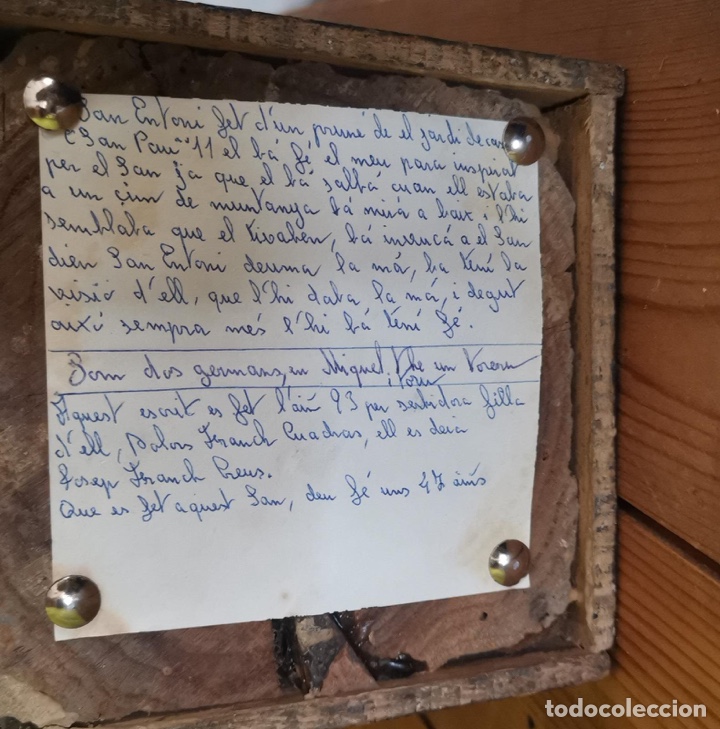 San Entoni fet d'un pruné de el jardi de casa
C San Pau nº 11 el bá fé el meu para inspirat
per el San ja que el bá salbá cuan ell estaba
a un çim de muntanya bá mirá a baix i l'hi
semblaba que el tibaben, bá inbucá a el San
dien San Entoni deuma la má, ba tení la
visió d'ell, que l'hi daba la má, i degut
aixó sempra més l'hi bá tení fé.
Som dos germans, en Miquel, i the un
Aquest escrit es fet l'aiñ 93 per serbidora filla
d'ell, Dolors Franch Cuadras, ell es deia
Josep Franch Creus.
Que es fet aquest San, deu fé uns 47 aiñs
todocoleccion